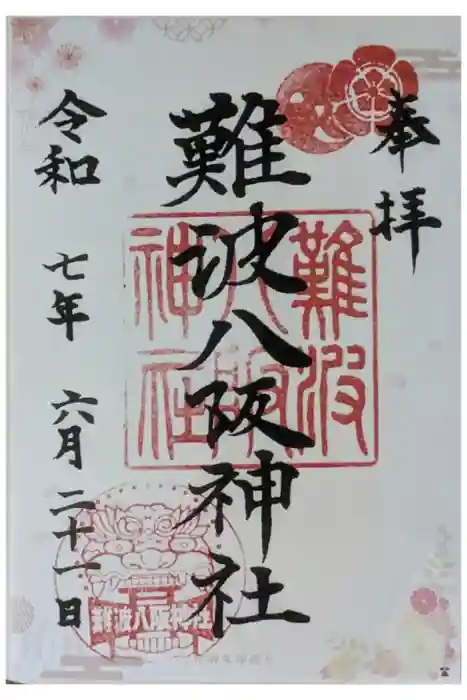 奉拝
難波八阪神社
難波八阪神社
令和 七年 六月 二十一日
難波八阪神社